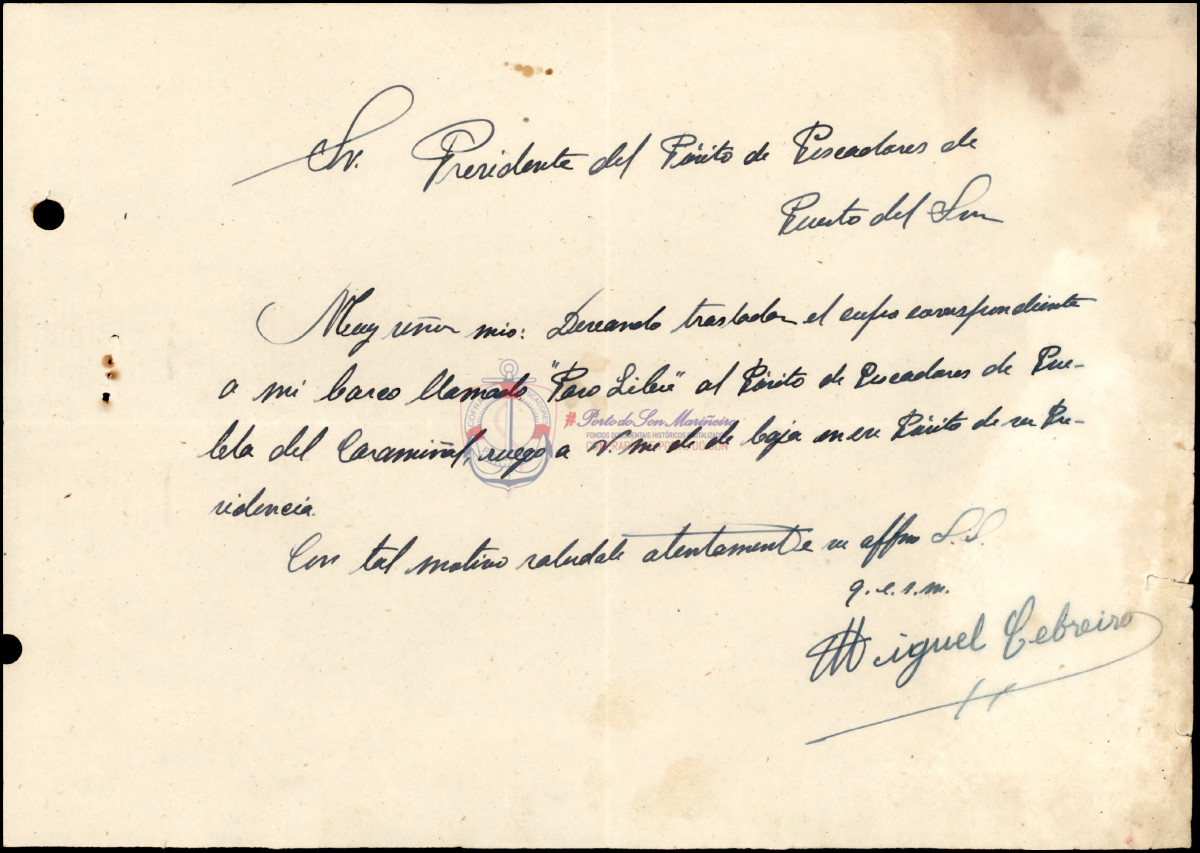 Sr. Presidente del Pósito de Pescadores de
Puerto del Son
Muy señor mio: Deseando trasladar el cupo correspondiente
a mi barco llamado "Paro Libre" al Pósito de Pescadores de Pue-
bla del Caramiñal, ruego a V. me el de baja en ese Pósito de su Pre-
sidencia.
Con tal motivo saludale atentamente su affmo S.S.
q. e. s. m.
Miguel Cebreiro
#Porto do Son Mariñeiro
FONDOS DOCUMENTAIS HISTÓRICOS DIXITALIZADOS